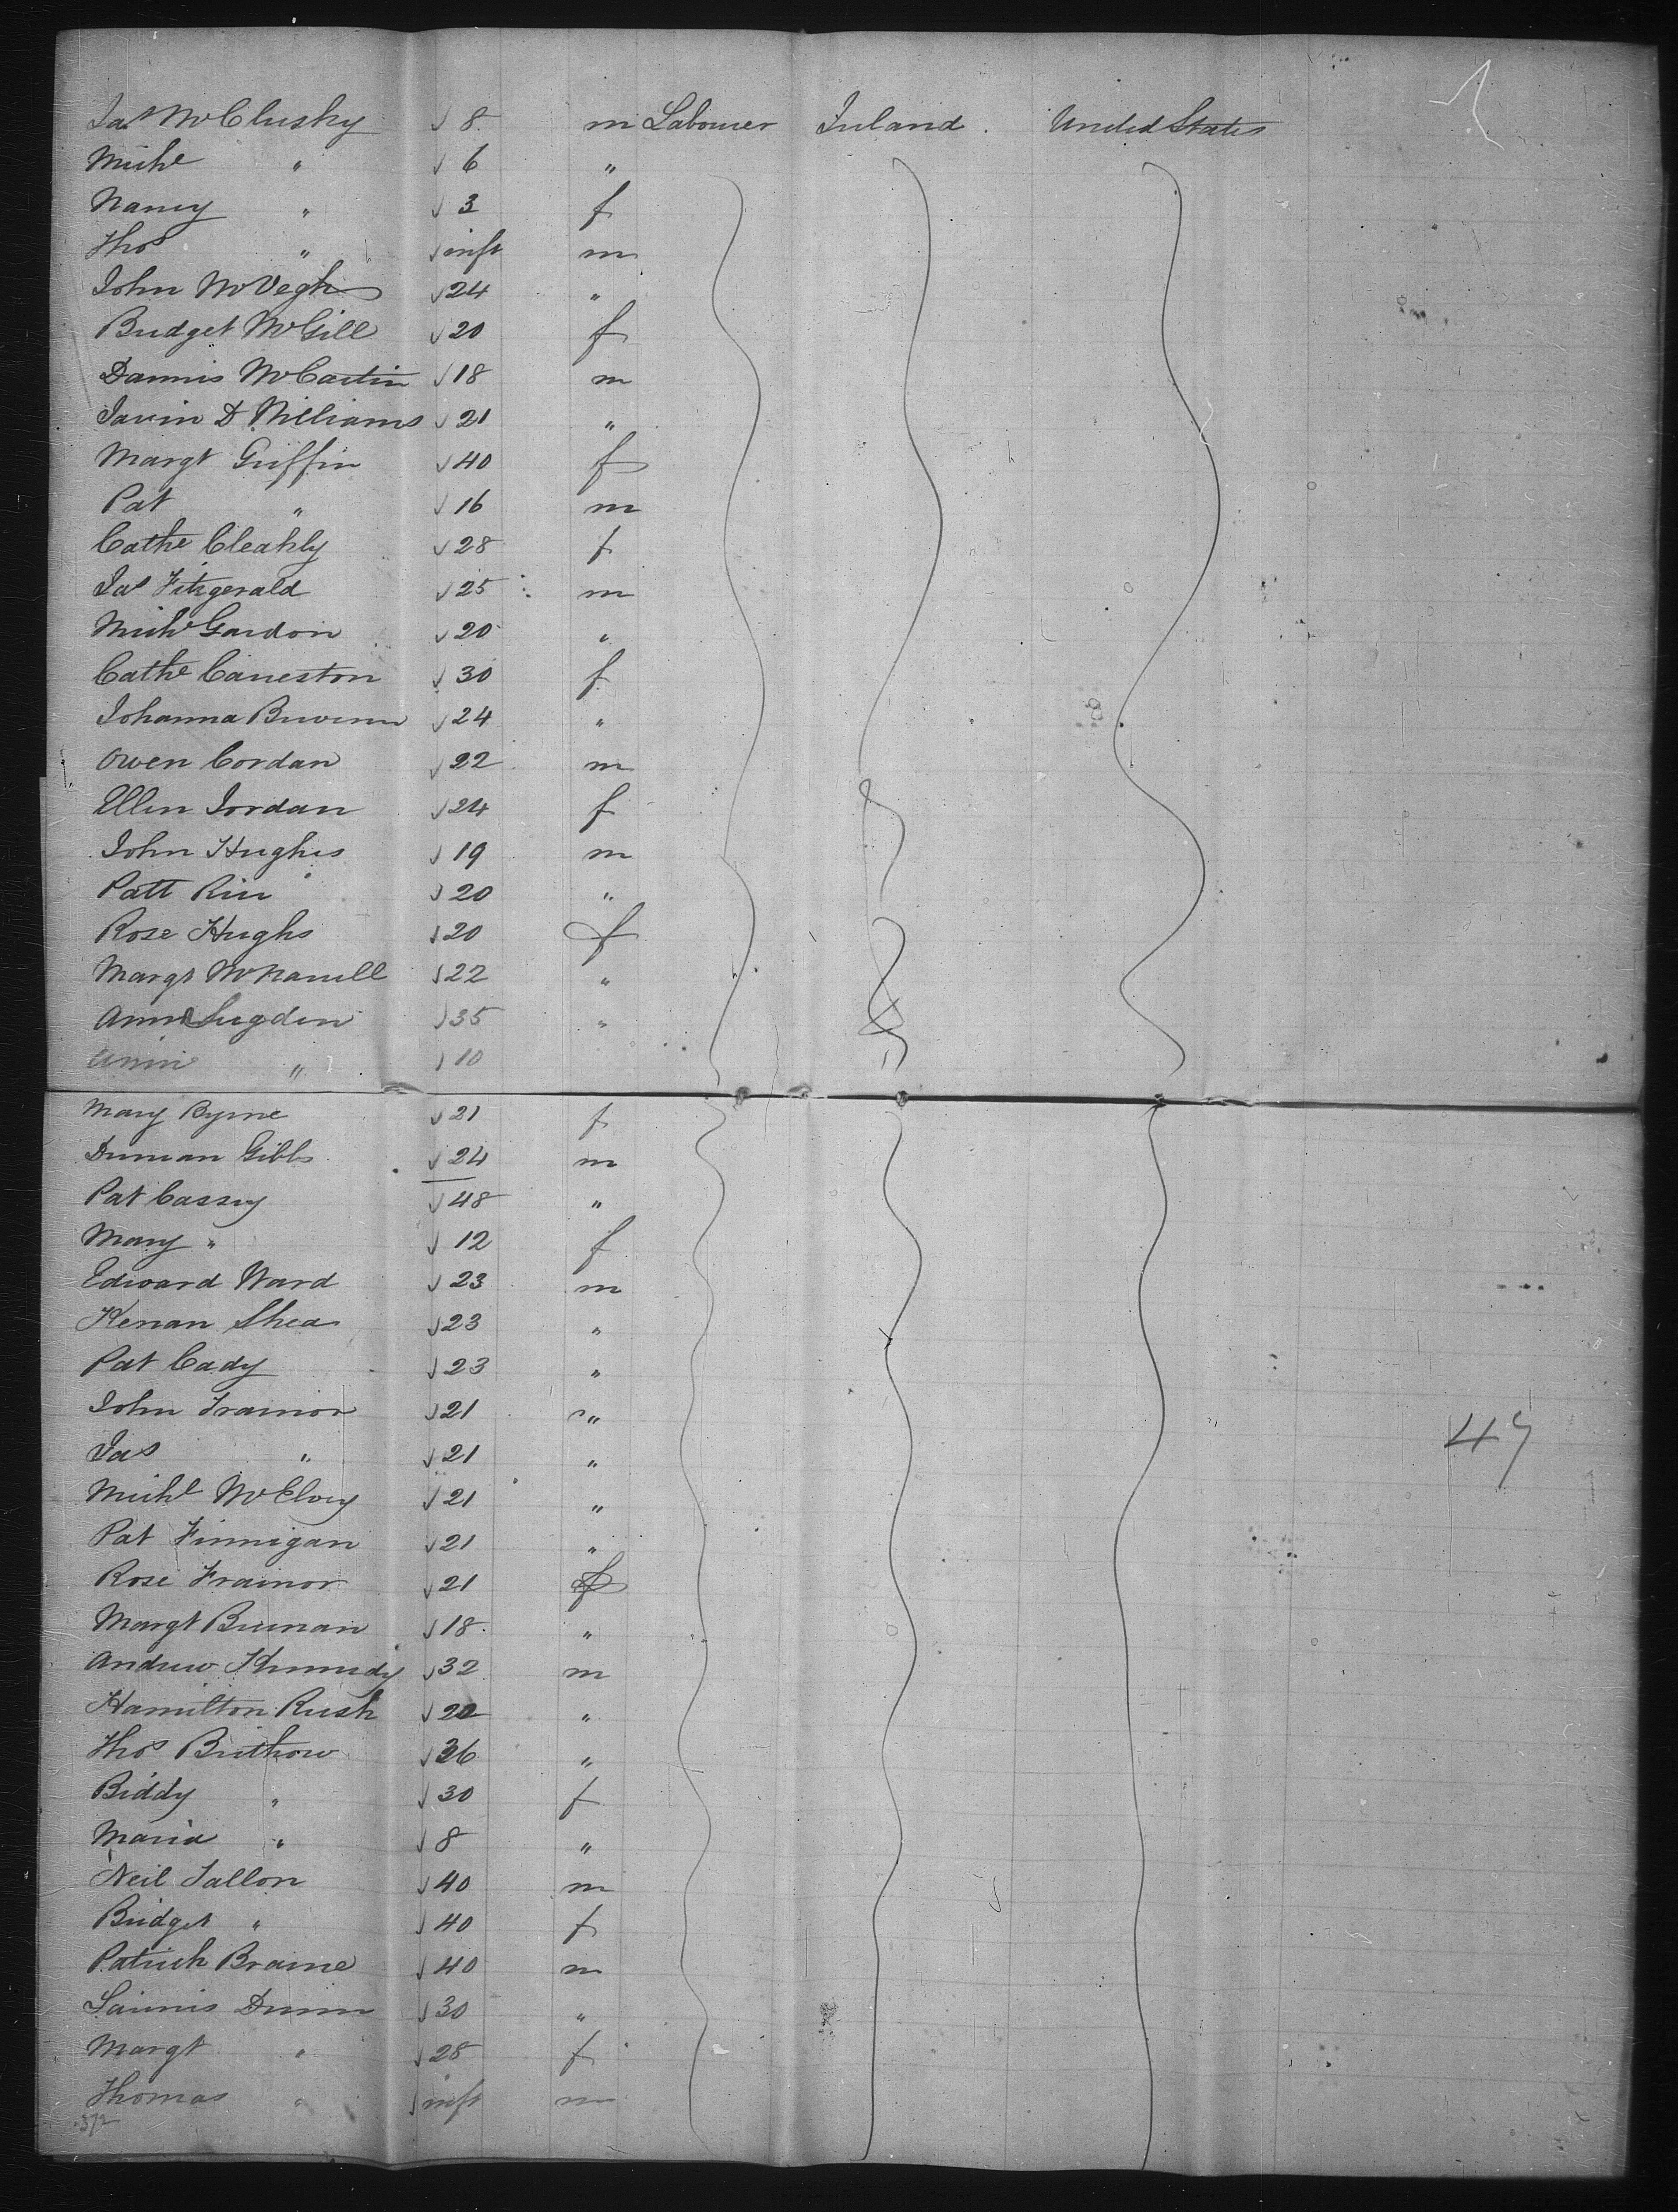 Jas McClusky 8 m Labourer Ireland. United States
Michl " 6 "
Nancy " 3 f
Thos " inft m
John McVegh 24 "
Bridget McGill 20 f
Dannis McCartin 18 m
D Williams 21 "
Margt Griffin 40 f
Pat " 16 m
Cathe Cleahly 28 f
Jas Fitzgerald 25 m
Michl Gordon 20 "
Cathe Caneston 30 f
Johanna 24 "
Owen Cordan 22 m
Ellen Jordan 24 f
John Hughes 19 m
Patt 20 "
Rose Hughs 20 f
Margt 22 "
Ann Sugden 35 "
Annie " 10
Mary Byrne 21 f
Duncan Gibbs 24 m
Pat Cassey 48 "
Mary " 12 f
Edward Ward 23 m
Kenan Shea 23 "
Pat Cady 23 "
John Trainor 21 "
Jas " 21 "
Michl McElvey 21 "
Pat Finnigan 21 "
Rose Trainor 21 f
Margt Brennan 18 "
Andrew Kennedy 32 m
Hamilton Rush 20 "
Thos Bruthow 36 "
Biddy " 30 f
Maria " 8 "
Neil Tallon 40 m
Bridget " 40 f
Patrick Braine 40 m
Dunn 30 "
Margt " 28 f
Thomas " inft m
372
47